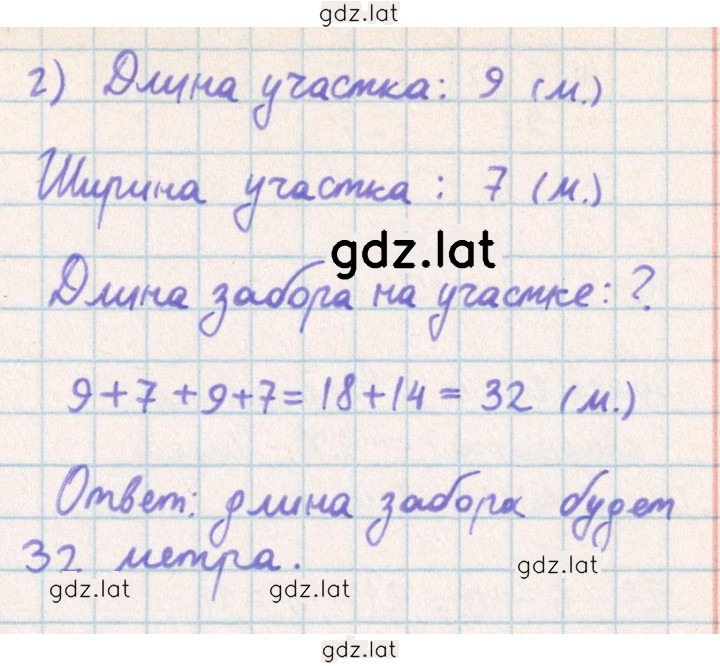 gdz.lat
г) Длина участка: 9 (м.)
Ширина участка: 7 (м.)
gdz.lat
Длина забора на участке: ?
9+7+9+7=18+14=32 (м.)
Ответ: длина забора будет
32 метра.
gdz.lat
gdz.lat
gdz.lat
gdz.lat